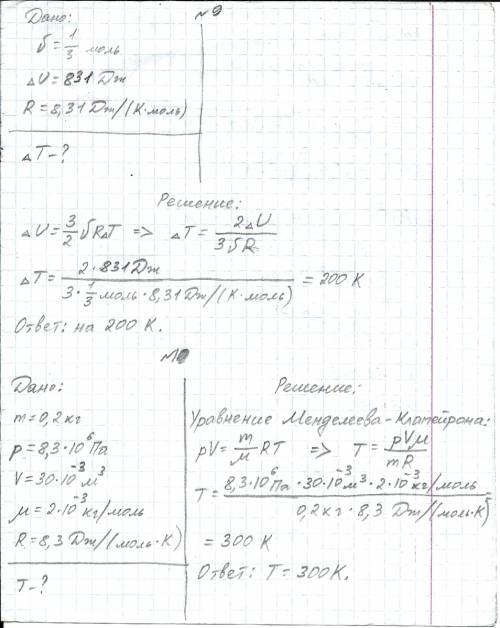 №9
Дано:
υ = 1/3 моль
ΔU = 831 Дж
R = 8,31 Дж/(К·моль)
ΔT - ?
Решение:
ΔU = 3/2 υRΔT => ΔT = 2ΔU / 3υR
ΔT = 2·831 Дж / 3·1/3 моль·8,31 Дж/(К·моль) = 200 К
Ответ: на 200 К.
Дано:
m = 0,2 кг
p = 8,3·10⁶ Па
V = 30·10⁻³ м³
μ = 2·10⁻³ кг/моль
R = 8,3 Дж/(моль·К)
T - ?
Решение:
Уравнение Менделеева-Клапейрона:
pV = m/μ RT => T = pVμ / mR
T = 8,3·10⁶ Па · 30·10⁻³ м³ · 2·10⁻³ кг/моль / 0,2 кг · 8,3 Дж/(моль·К) =
= 300 К
Ответ: T = 300 К.